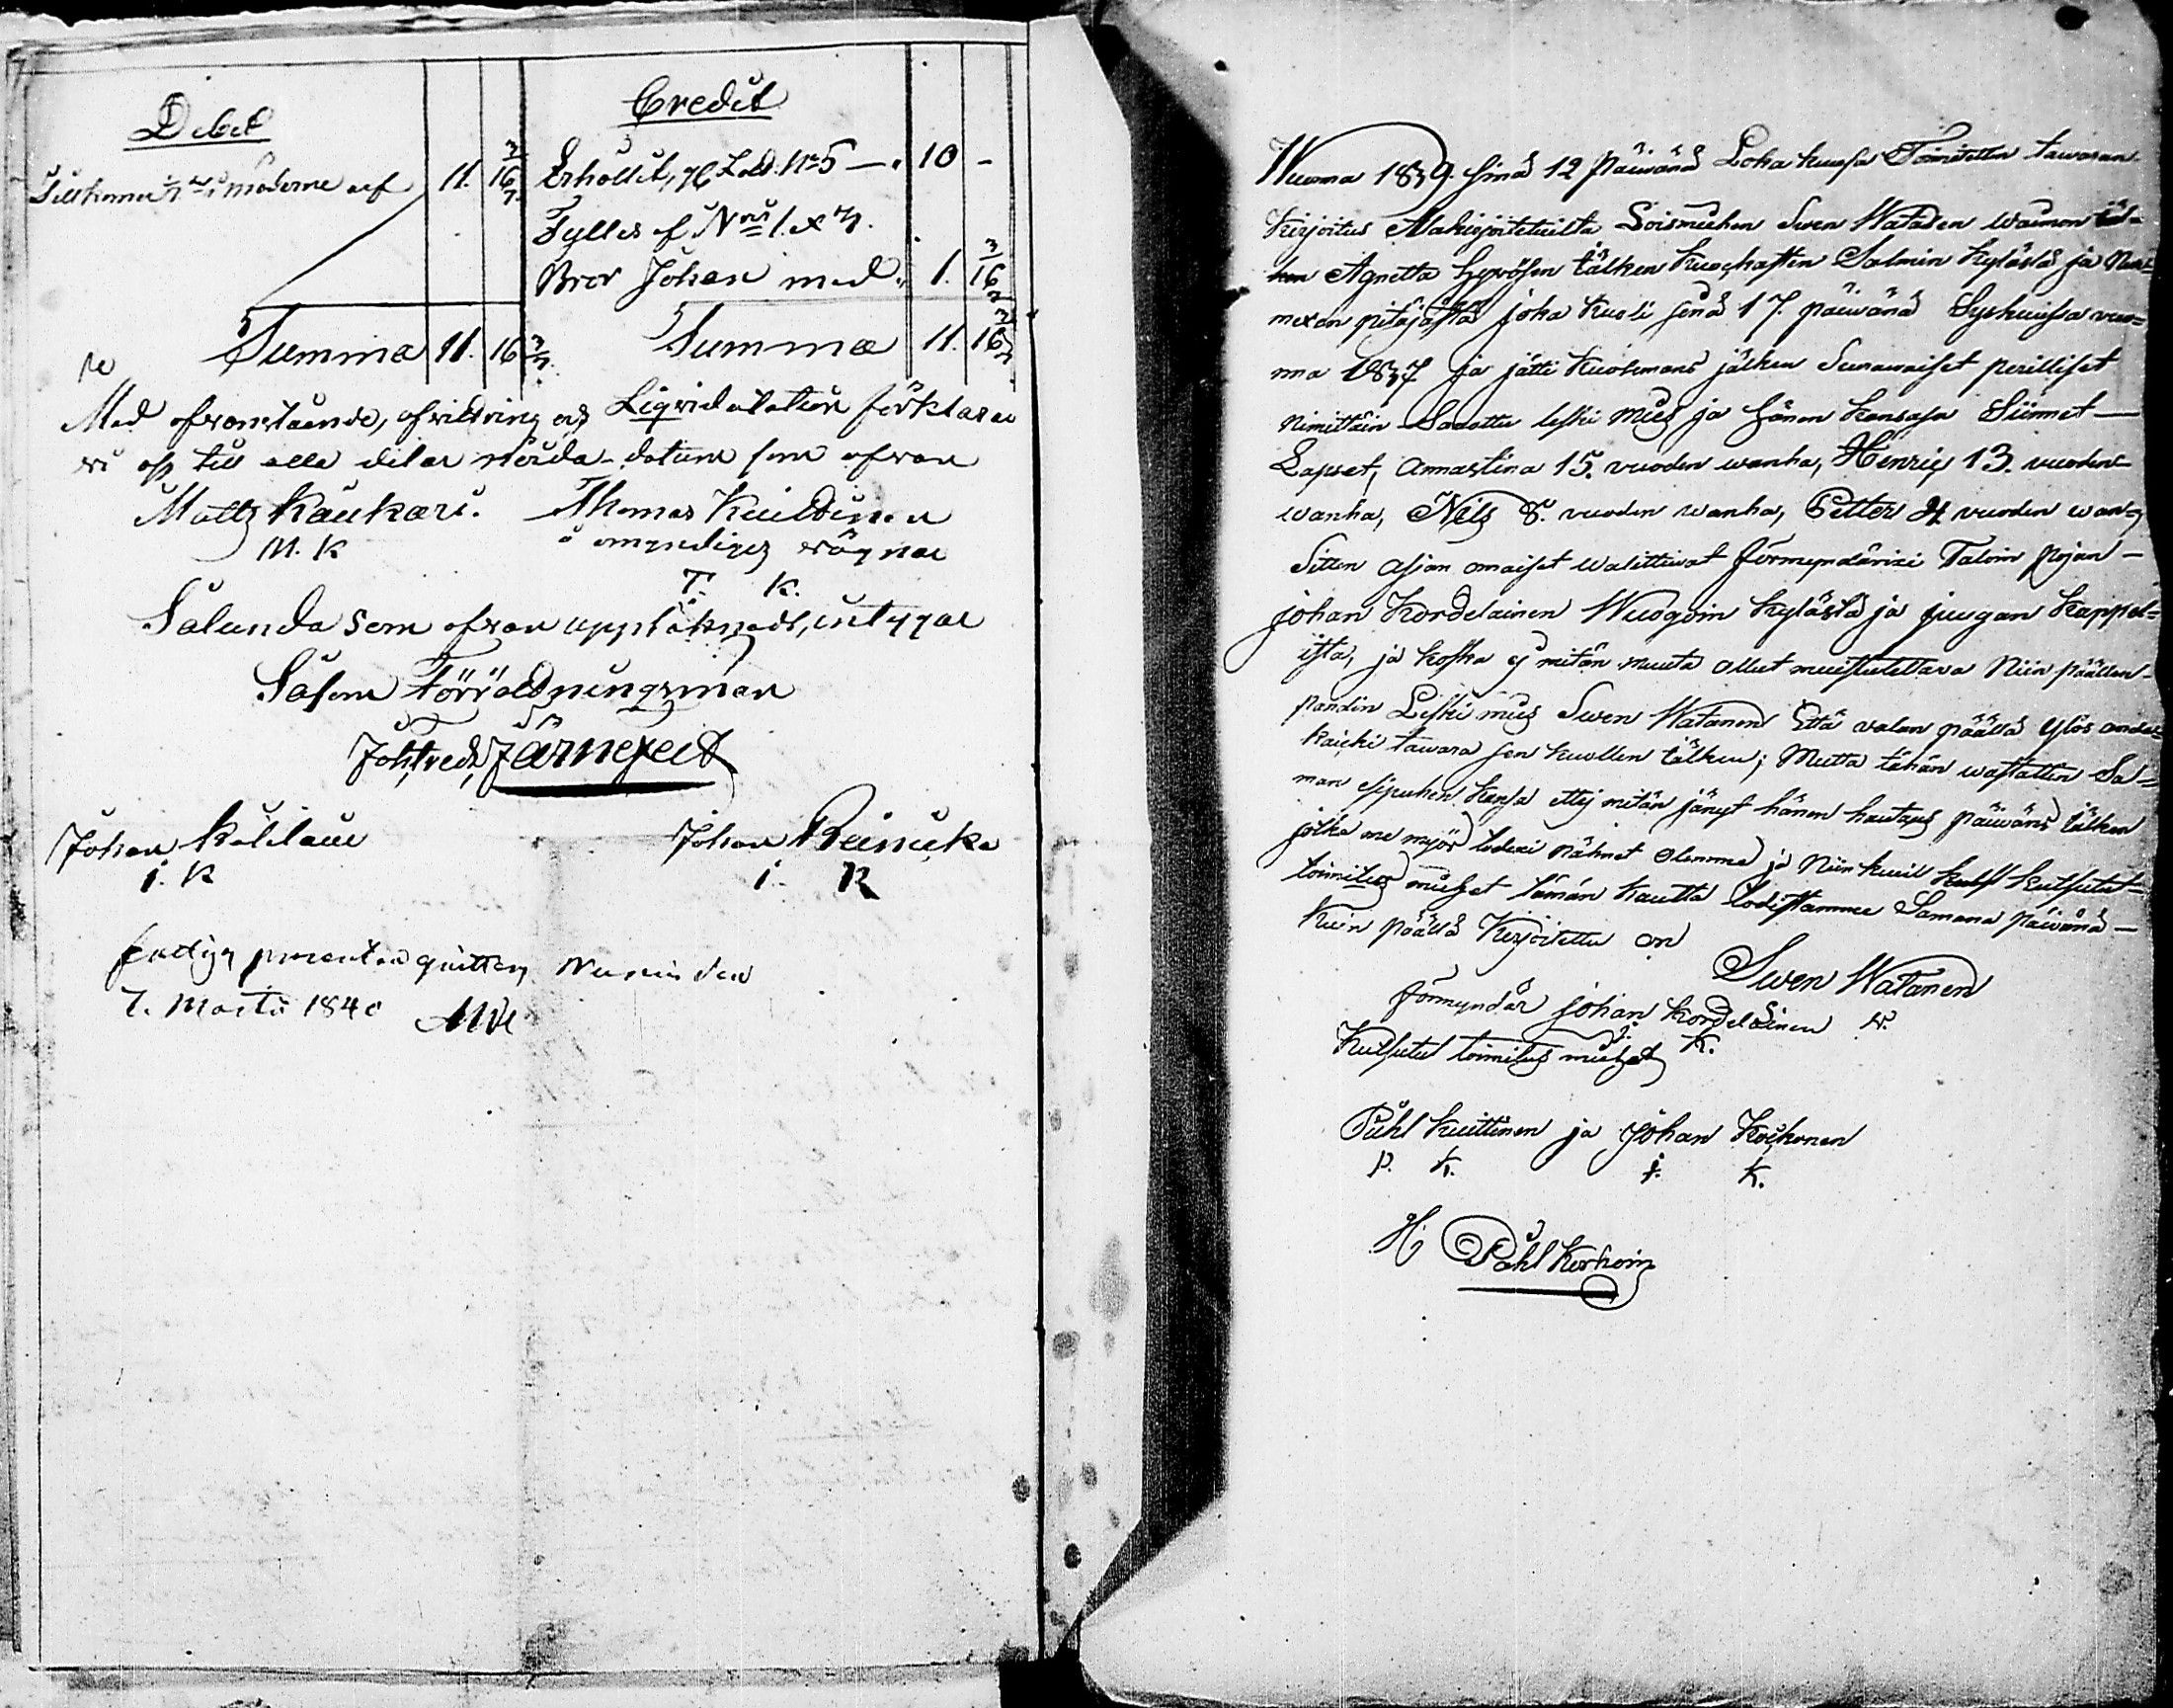 Debet
Credit
Tillkommer i möderne arf 11. 16 3/7
Erhållit, Lott. No 5 — 10 -
Fylles af No 1.
Bror Johan med 1. 16 3/7
Summa 11. 16 3/7
Summa 11. 16 3/7
Med ofvanstående, afvittring och Liqvidatation förklarar
vi oss till alla delar nöjda - datum som ofvan
Matts Kaukari. Thomas Kuildinen
M. K å omyndiges vägnar
T. K.
Sålunda som ofvan upptäknadt, intygar
Såsom Förrädningsman
Joh. Fredr. Järnefelt
Johan Johan Reinicka
i. K i. K
fattig procenten quitteras Nurmis den
7. Martii 1840
Wuonna 1839. sinä 12 päiwänä Loka kuusa Toimitettin tawaran
kirjoitus Makirjoitetuilta Loismiehen Swen Watasen waimon jäl=
ken Agnetta Hyvösen jälken Kuockasten Salmin kylästä ja Nur=
mexen pitäjästä joka kuoli sinä 17. päiwänä Syskuussa vuo=
nna 1837 ja jätti kuolemans jälken Seurawaiset perilliset
Nimittäin Sanottu leski mies ja hänen kansasa Siinnet —
Lapset, Annastina 15. vuoden wanha, Henric 13. vuoden
wanha, Nils 8. vuoden wanha, Petter 4 vuoden wan-
Sitten asjan omaiset walittiwat förmyndärixi Talon pojan —
johan Kordelainen Wuogoin kylästä ja juugan kappel=
ista, ja koska ej mitän muuta ollut muistutettava Niin päällen-
pandin Leski mies Swen Watanen Että valan päällä ylös anda=
kaicki tawara sen kuollen jälken; Mutta tähän wastattin Sa=
man esipuhen kansa ettej mitän jänyt hänen hautaus päiwäns jälken
jolka me myös todexi nähnet olemme ja Niin kuin kutsutut-
toimitus miehet tämän kautta todistamme Samana päiwänä —
kuin päällä kirjoitettu on
Swen Watanen
förmyndär johan kordelainen
j. K.
Kutsutut toimitus miehet
Påhl Kuittinen ja Johan Kockonen
P. K. j. K.
Påhl Korhoin